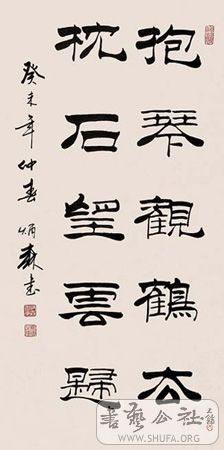 抱琴觀鶴去
枕石望雲歸
癸未年仲春炳森書
書藝公社
WWW.SHUFA.ORG